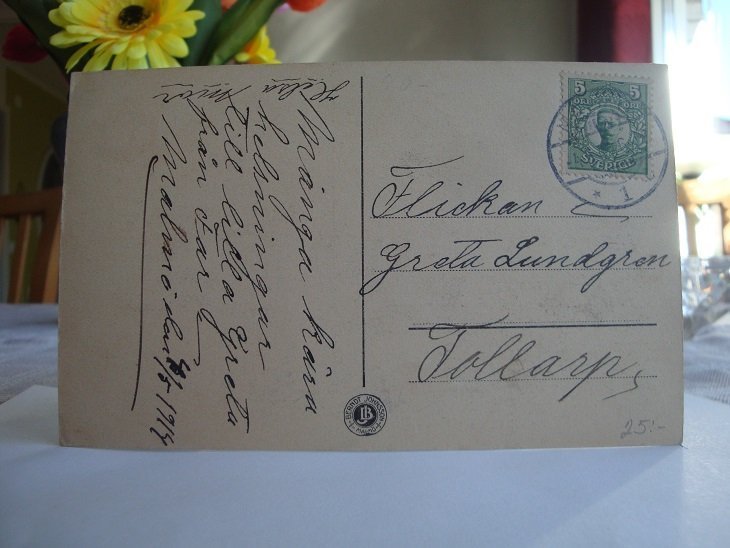 Många kära
helsningar
till lilla Greta
från Far
Malmö den 4/5 1914
Helsa Mor
5 5
ÖRE ÖRE
SVERIGE
* 1
Flickan
Greta Lundgren
Tollarp
BERNDT JOHNSSON
25:-